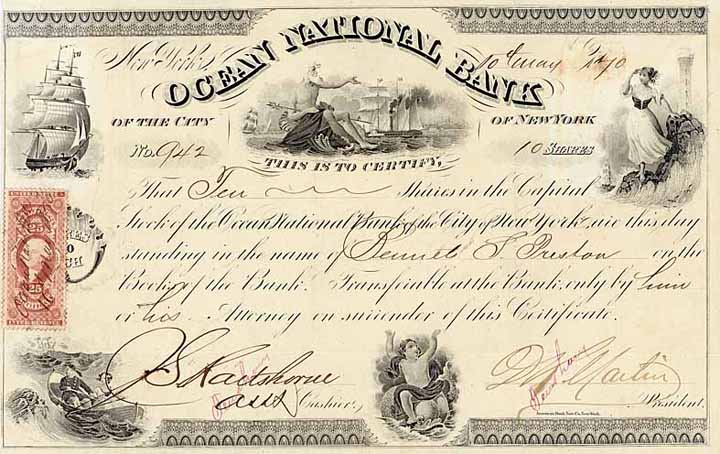 OCEAN NATIONAL BANK
New York
OF THE CITY OF NEW YORK
No. 942
10 SHARES
THIS IS TO CERTIFY,
That Ten Shares in the Capital
Stock of the Ocean National Bank of the City of New York are this day
standing in the name of Bennet S. Preston on the
Books of the Bank. Transferable at the Bank only by him
or his Attorney on surrender of this Certificate.
25
25
Cashier.
Martin
President.
American Bank Note Co. New York.